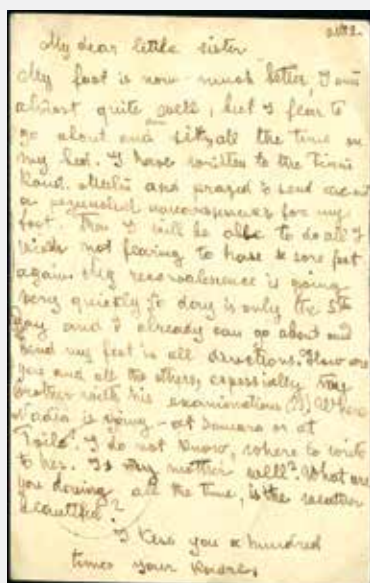 My dear little sister
My foot is now much better, I am
almost quite well, but I fear to
go about and sit all the time on
my bed. I have written to the
and prayed to send
a for my
foot. I will be able to do all I
wish not fearing to have a sore foot
again. My is going
very quickly to day is only the 5th
day and I already can go about and
bend my feet in all directions. How are
you and all the others, especially my
brother with his examination (?) Where
Nadia is - at Samara or at
I do not know, where to write
to her. Is my mother well? What are
you all the time, is the weather
beautiful?
I kiss you a hundred
times your